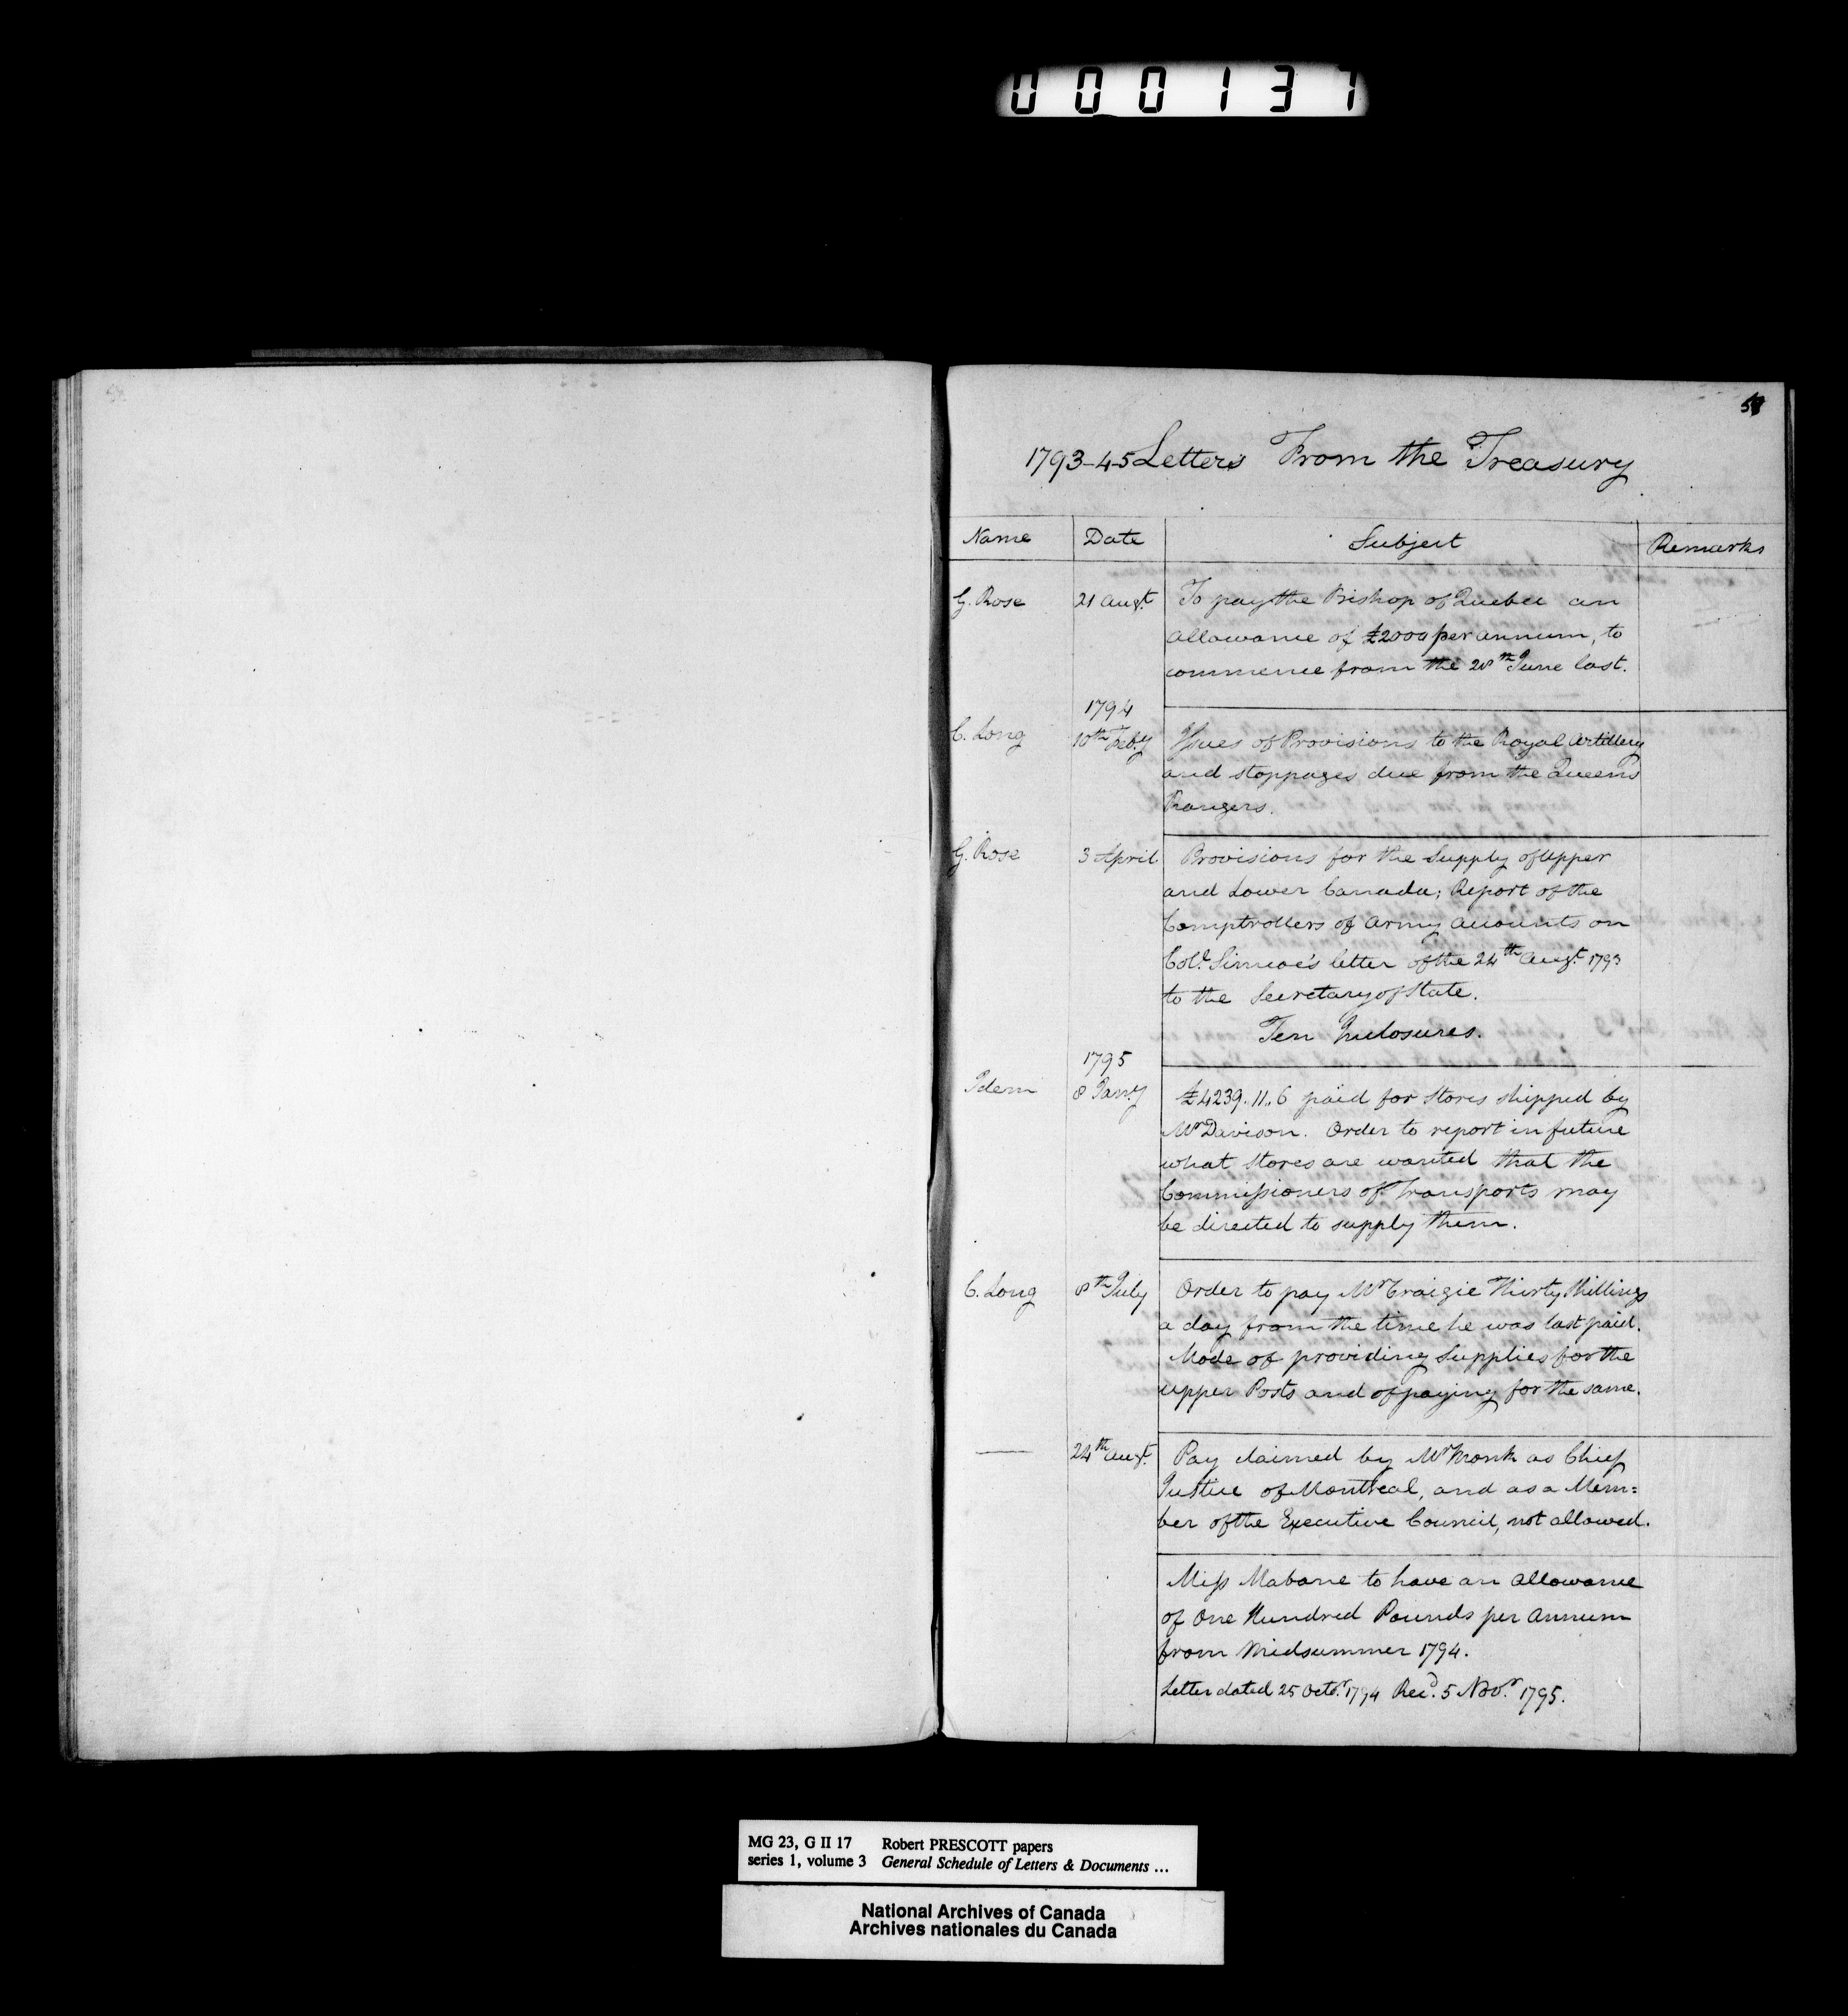 000137
1793-4-5 Letters From the Treasury
Name Date Subject Remarks
G. Rose 21 Augt. To pay the Bishop of Quebec an
allowance of £2000 per annum, to
commence from the 28th June last.
1794
C. Long 10th Feby. Issues of Provisions to the Royal Artillery
and stoppages due from the Queens
Rangers.
G. Rose 3 April Provisions for the Supply of Upper
and Lower Canada; Report of the
Comptrollers of Army Accounts on
Coll. Simcoe's letter of the 24th Augt. 1793
to the Secretary of State.
Ten Inclosures.
1795
Idem 8 Jany. £4239..11..6 paid for Stores shipped by
Mr Davison. Order to report in future
what Stores are wanted that the
Commissioners of Transports may
be directed to supply them.
C. Long 8th July Order to pay Mr Craigie Thirty Shillings
a day from the time he was last paid.
Mode of providing Supplies for the
upper Posts and of paying for the same.
— 24th Augt. Pay claimed by Mr Monk as Chief
Justice of Montreal, and as a Mem=
ber of the Executive Council, not allowed.
Miss Mabane to have an allowance
of One Hundred Pounds per Annum
from Midsummer 1794.
Letter dated 25 Octr. 1794 Recd. 5 Novr. 1795.
MG 23, G II 17 Robert PRESCOTT papers
series 1, volume 3 General Schedule of Letters & Documents ...
National Archives of Canada
Archives nationales du Canada